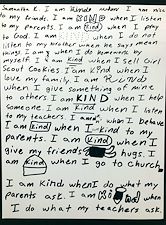 Samantha R. I am Kind when I am nice
to my friends. I am KIND when I listen
to my parents. I am kind when I pray
to God. I am kind when I do not
listen to my brother when he says mean
things. I am kind when I do homework by
myself. I am kind when I sell Girl
Scout Cookies I am kind when I
love my family. I am KIND
when I give something of mine
to others I am KIND when I help
someone. I am Kind when I listen
to my teachers. I am when I behave
I am kind when I kind to my
parents. I am kind when I
give my friends hugs. I
am kind when I go to Church.
I am kind when I do what my
parents ask. I am kind when
I do what my teachers ask